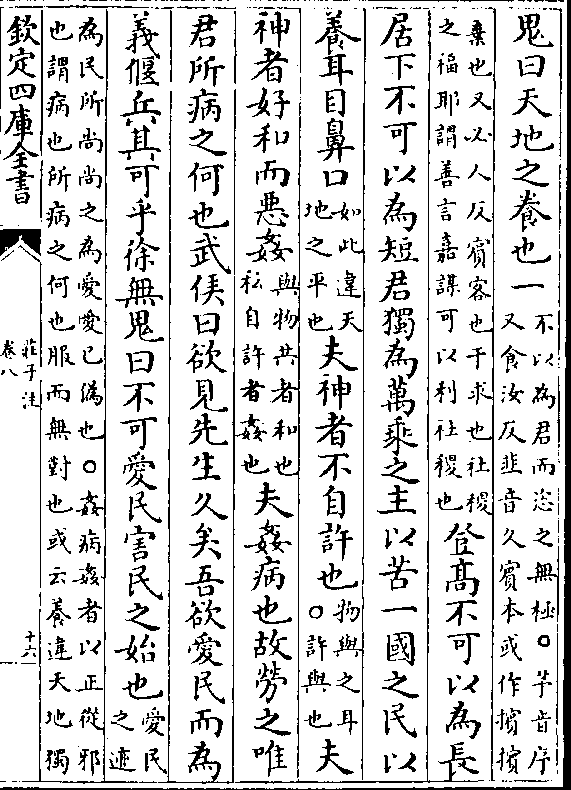 鬼曰天地之養也一不以為君而恣之無極○芧音序
又食汝反韭音久賓本或作擯擯
棄也又必人反賓客也干求也社稷
之福耶謂善言嘉謀可以利社稷也登髙不可以為長
居下不可以為短君獨為萬乘之主以苦一國之民以
養耳目鼻口如此違天
地之平也夫神者不自許也物與之耳
○許與也夫
神者好和而惡姦與物共者和也
私自許者姦也夫姦病也故勞之唯
君所病之何也武侯曰欲見先生久矣吾欲愛民而為
義偃兵其可乎徐無鬼曰不可愛民害民之始也愛民
之迹
為民所尚尚之為愛愛已偽也○姦病姦者以正從邪
也謂病也所病之何也服而無對也或云養違天地獨
欽定四庫全書
莊子注
卷八
十六